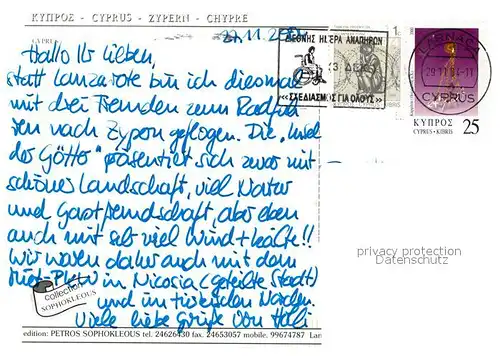 ΚΥΠΡΟΣ - CYPRUS - ZYPERN - CHYPRE
22.11.2004
Hallo Ihr Lieben,
statt Lanzarote bin ich diesmal
mit drei Fremden zum Radfah
ren nach Zypern geflogen. Die "Insel
der Götter" präsentiert sich zwar mit
schöner Landschaft, viel Natur
und Gastfreundschaft, aber eben
auch mit sehr viel Wind + Kälte!!
Wir waren daher auch mit dem
in Nicosia (geteilte Stadt)
und im türkischen Norden.
Viele liebe Grüße von
ΔΙΕΘΝΗΣ ΗΜΕΡΑ ΑΝΑΠΗΡΩΝ
3 ΔΕΚ
«ΣΧΕΔΙΑΣΜΟΣ ΓΙΑ ΟΛΟΥΣ»
1c
LARNACA
29.11.04-11
CYPRUS
ΚΥΠΡΟΣ
CYPRUS - KIBRIS
25
privacy protection
Datenschutz
collection
SOPHOKLEOUS
edition: PETROS SOPHOKLEOUS tel. 24626430 fax. 24653057 mobile. 99674787